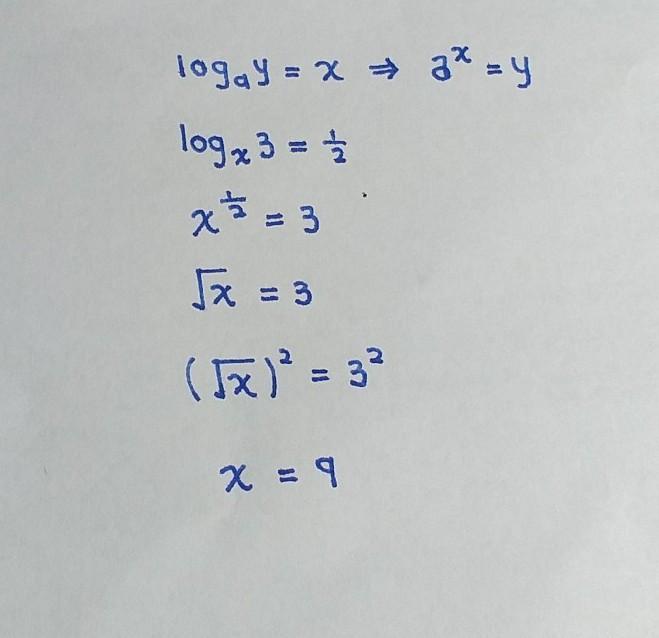 logₐy = x ⇒ aˣ = y
logₓ3 = 1/2
x^(1/2) = 3
√x = 3
(√x)² = 3²
x = 9